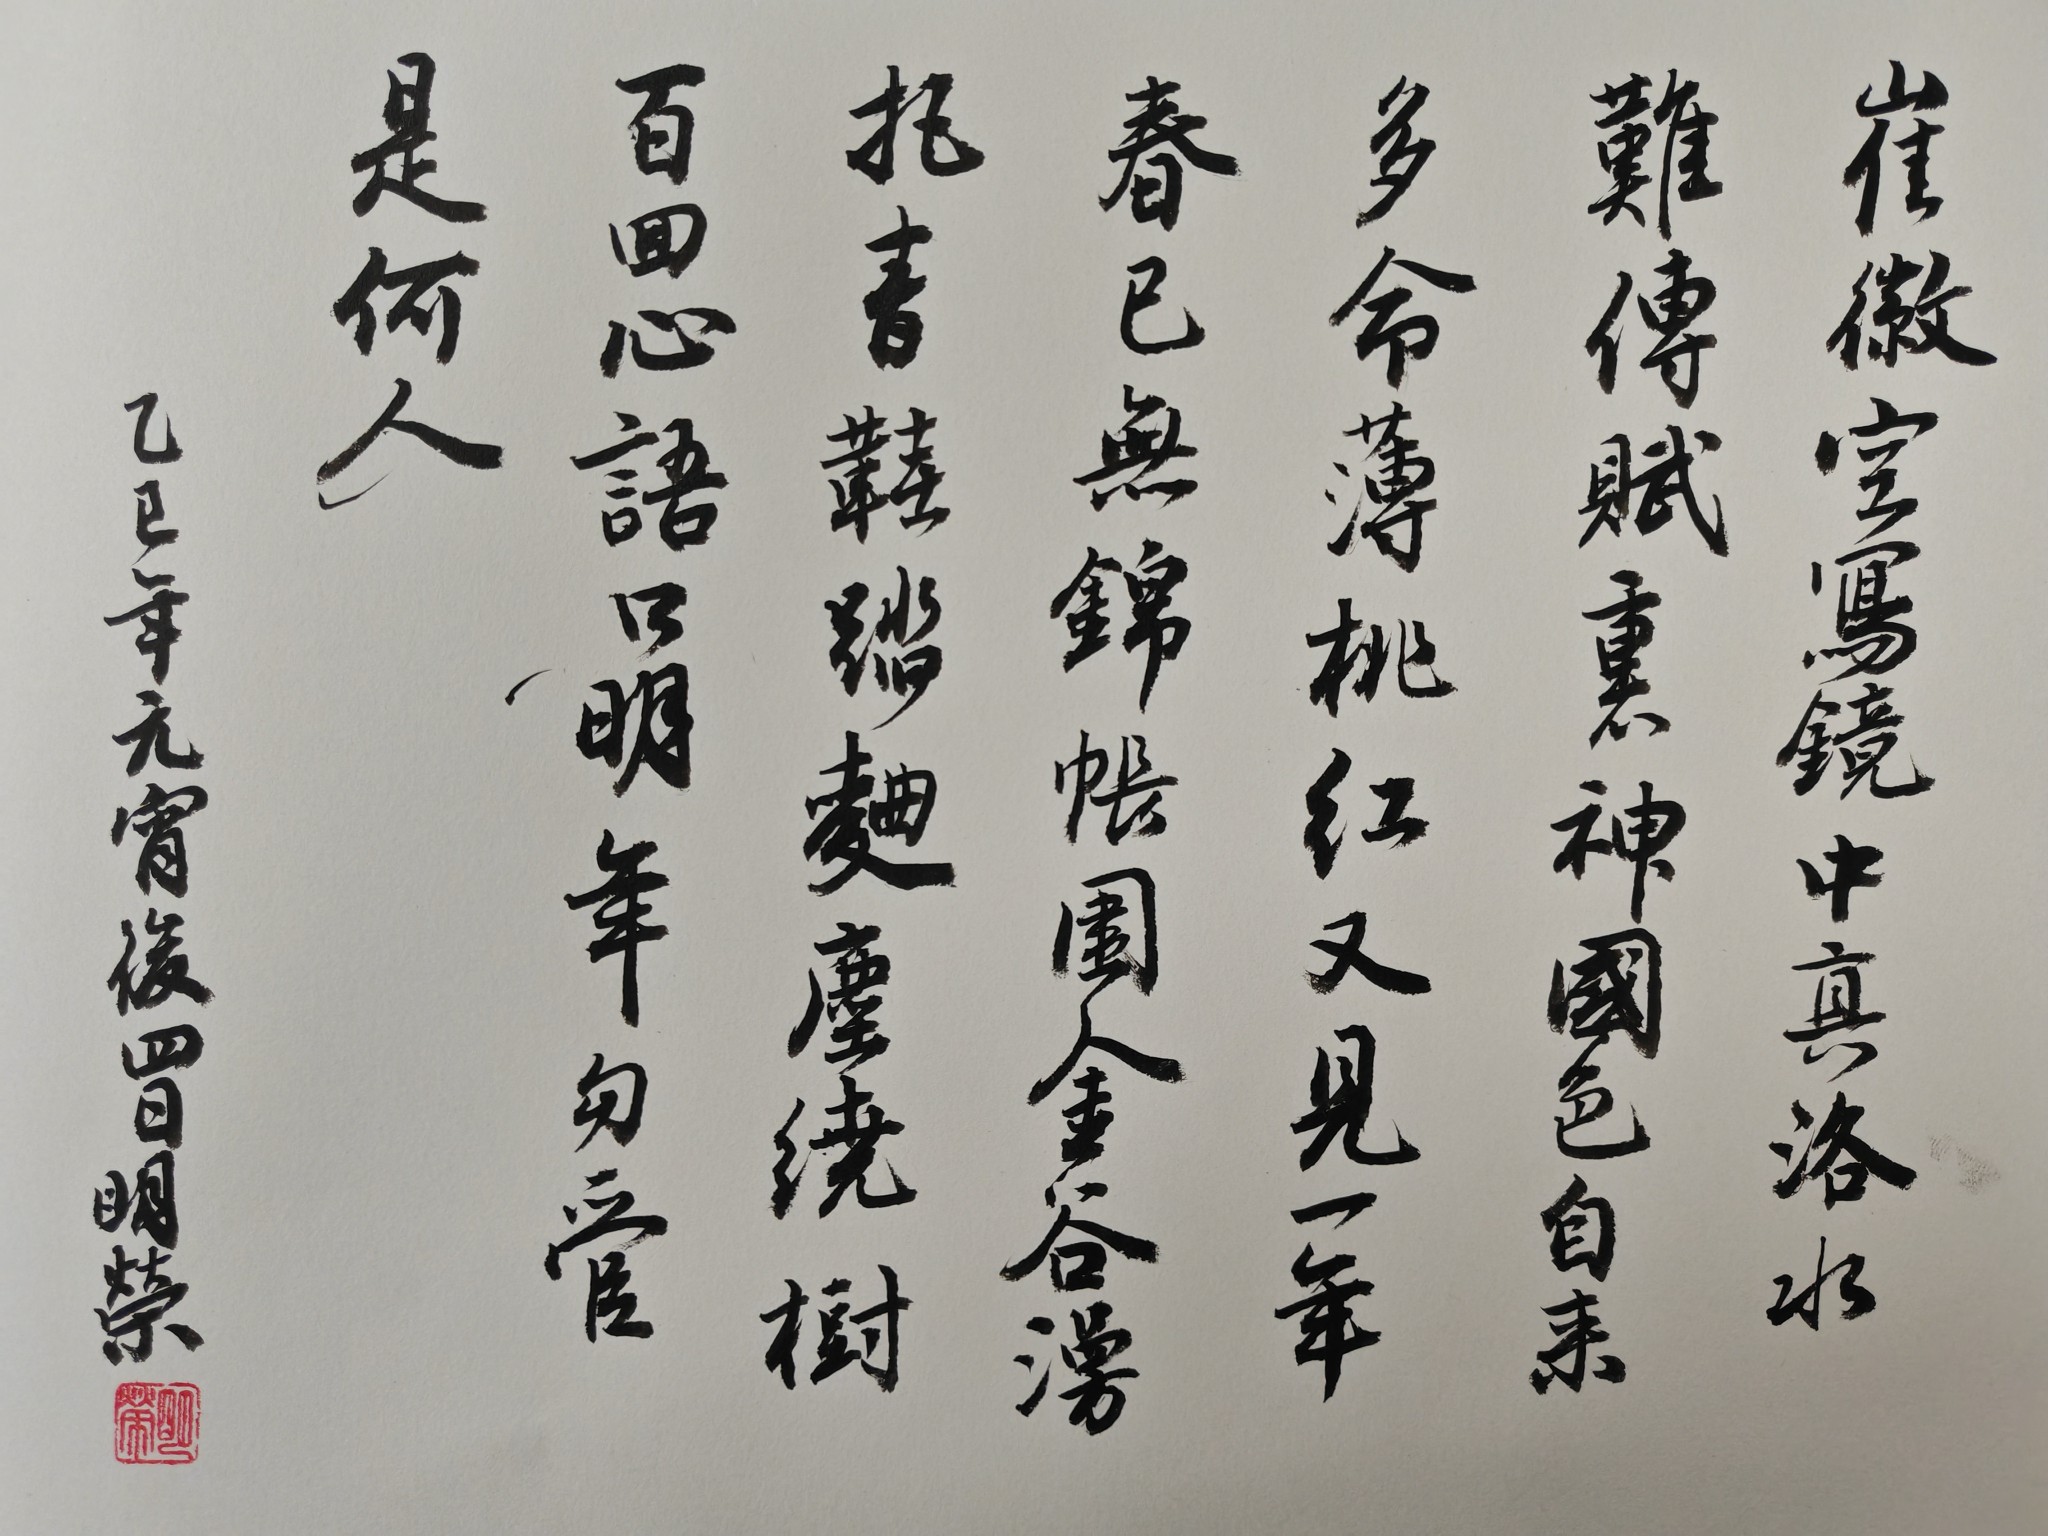 崔徽空寫鏡中真洛水
難傳賦裏神國色自来
多命薄桃红又見一年
春已無錦帳圍金谷漫
托青鞋踏麯塵繞樹
百回心語口明年勿管
是何人
乙巳年元宵後四日明榮
明榮